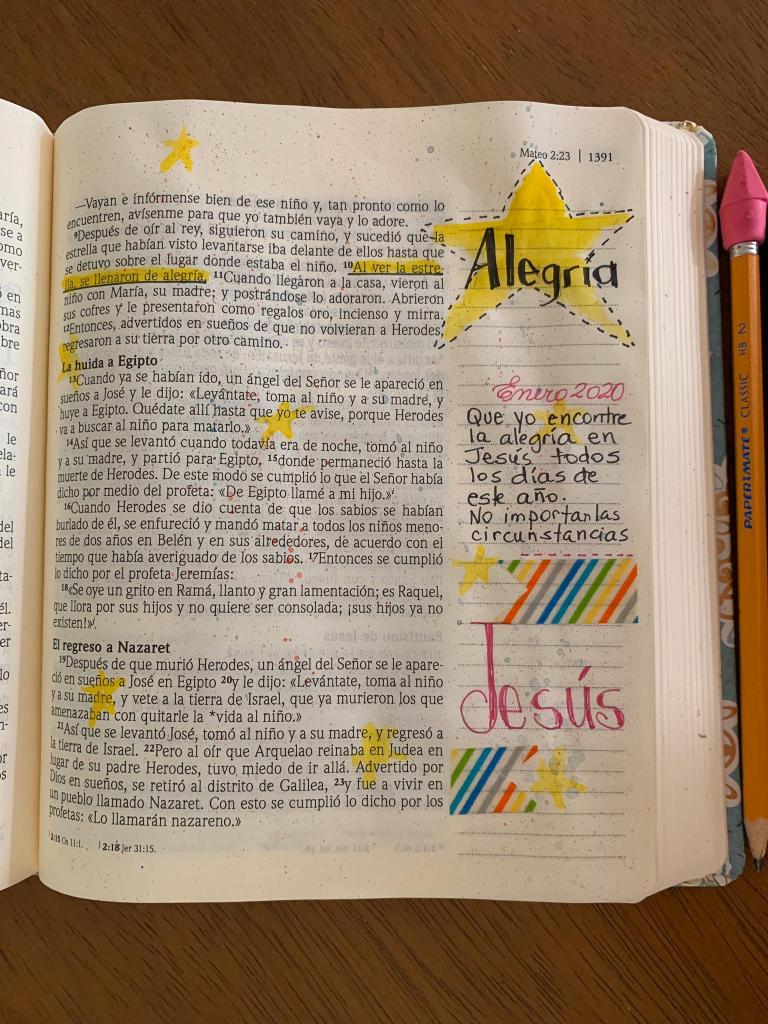 Mateo 2:23 | 1391
—Vayan e infórmense bien de ese niño y, tan pronto como lo
encuentren, avísenme para que yo también vaya y lo adore.
9Después de oír al rey, siguieron su camino, y sucedió que la
estrella que habían visto levantarse iba delante de ellos hasta que
se detuvo sobre el lugar donde estaba el niño. 10Al ver la estre-
lla, se llenaron de alegría. 11Cuando llegaron a la casa, vieron al
niño con María, su madre; y postrándose lo adoraron. Abrieron
sus cofres y le presentaron como regalos oro, incienso y mirra.
12Entonces, advertidos en sueños de que no volvieran a Herodes,
regresaron a su tierra por otro camino.
La huida a Egipto
13Cuando ya se habían ido, un ángel del Señor se le apareció en
sueños a José y le dijo: «Levántate, toma al niño y a su madre, y
huye a Egipto. Quédate allí hasta que yo te avise, porque Herodes
va a buscar al niño para matarlo.»
14Así que se levantó cuando todavía era de noche, tomó al niño
y a su madre, y partió para Egipto, 15donde permaneció hasta la
muerte de Herodes. De este modo se cumplió lo que el Señor había
dicho por medio del profeta: «De Egipto llamé a mi hijo.»
16Cuando Herodes se dio cuenta de que los sabios se habían
burlado de él, se enfureció y mandó matar a todos los niños meno-
res de dos años en Belén y en sus alrededores, de acuerdo con el
tiempo que había averiguado de los sabios. 17Entonces se cumplió
lo dicho por el profeta Jeremías:
18«Se oye un grito en Ramá, llanto y gran lamentación; es Raquel,
que llora por sus hijos y no quiere ser consolada; ¡sus hijos ya no
existen!»
El regreso a Nazaret
19Después de que murió Herodes, un ángel del Señor se le apare-
ció en sueños a José en Egipto 20y le dijo: «Levántate, toma al niño
y a su madre, y vete a la tierra de Israel, que ya murieron los que
amenazaban con quitarle la *vida al niño.»
21Así que se levantó José, tomó al niño y a su madre, y regresó a
la tierra de Israel. 22Pero al oír que Arquelao reinaba en Judea en
lugar de su padre Herodes, tuvo miedo de ir allá. Advertido por
Dios en sueños, se retiró al distrito de Galilea, 23y fue a vivir en
un pueblo llamado Nazaret. Con esto se cumplió lo dicho por los
profetas: «Lo llamarán nazareno.»
2:15 Os 11:1. 2:18 Jer 31:15.
Alegría
Enero 2020
Que yo encontre
la alegría en
Jesús todos
los días de
este año.
No importan las
circunstancias
Jesús
PAPERMATE CLASSIC HB 2